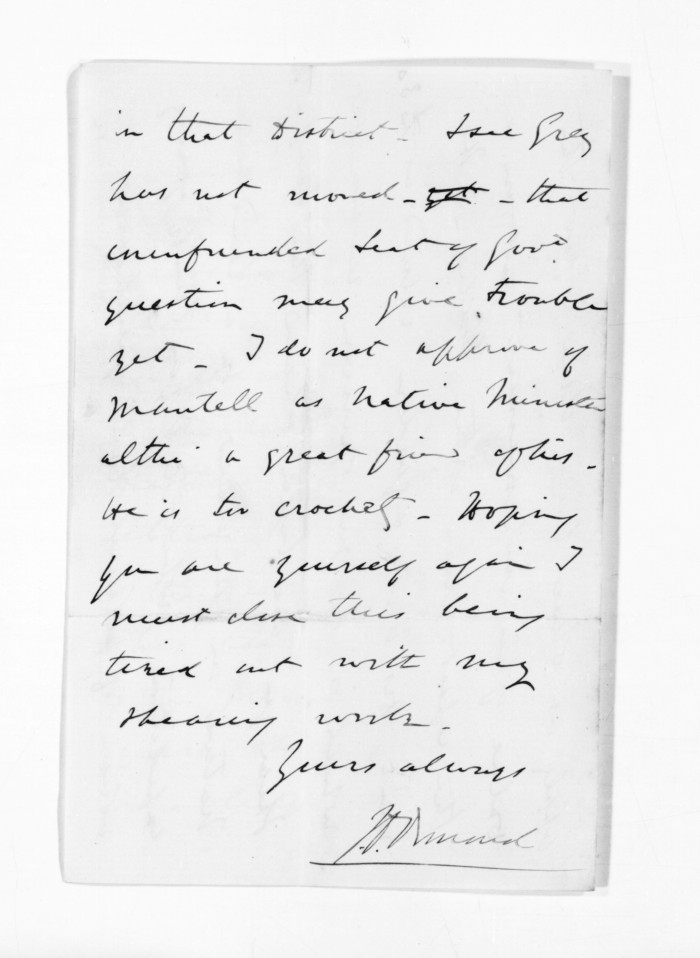 in that District - I see Grey
has not moved - yet - that
unfriended Seat of Govt.
question may give trouble
yet - I do not approve of
Mantell as Native Minister
altho' a great friend of his -
He is too crochety - Hoping
you are yourself again I
must close this being
tired out with my
shearing work -
Yours always
J.D. Ormond